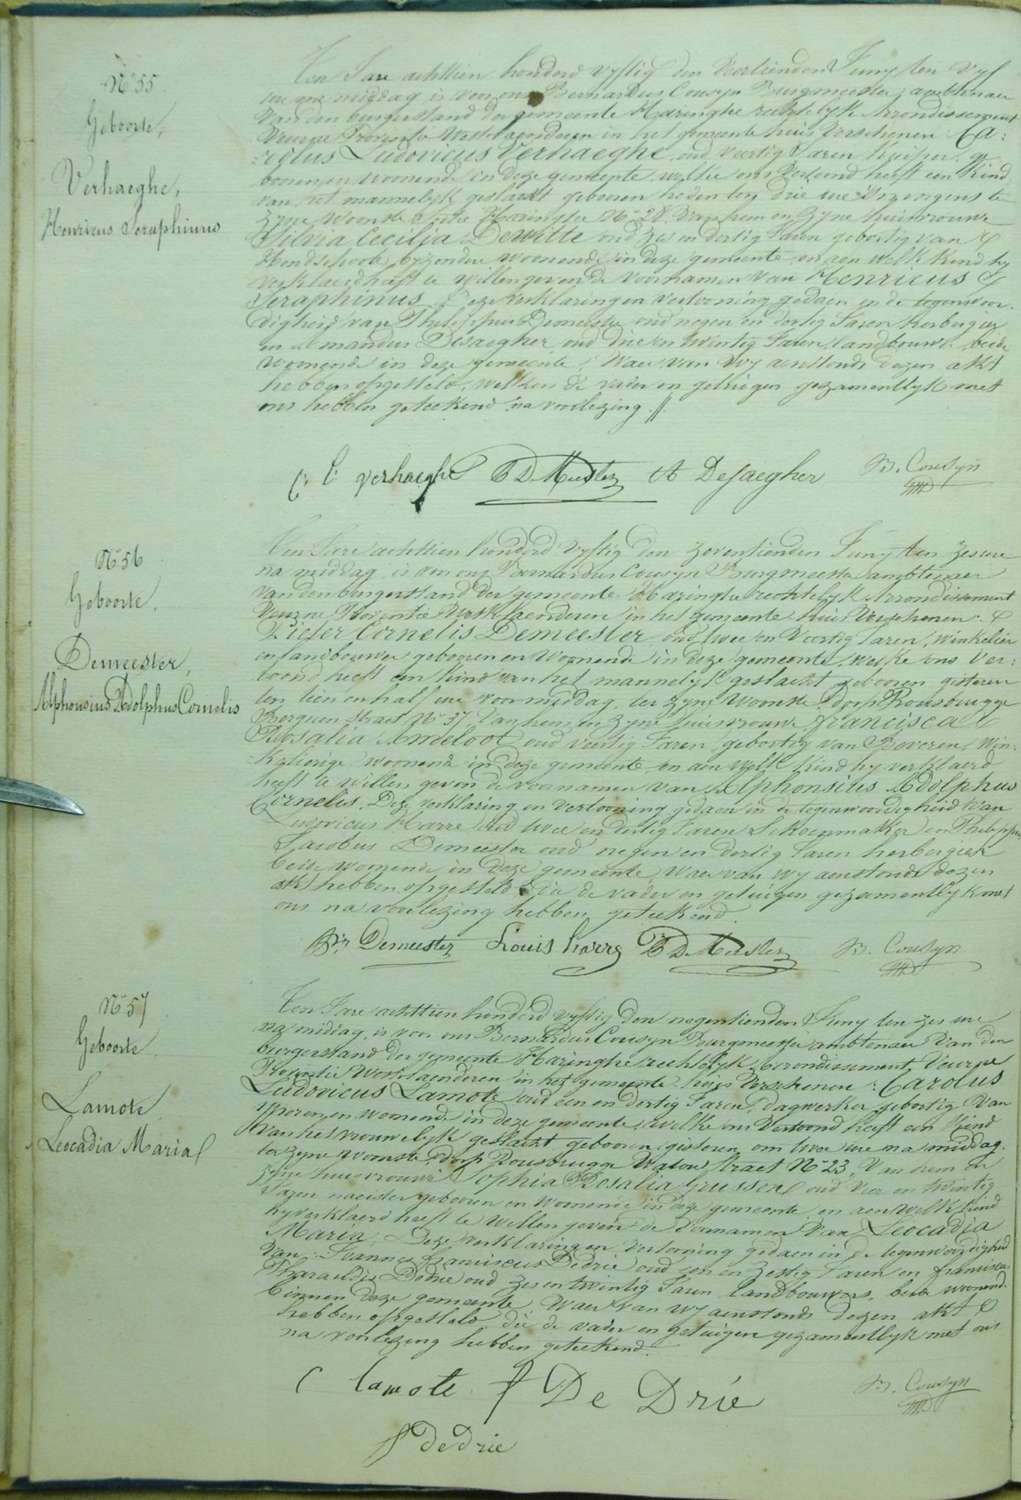 N° 55
Geboorte,
Verhaeghe,
Henricus Seraphinus
Ten Jare achttien honderd vyftig den veertienden Juny ten vyf
ure na middag is voor ons Bernardus Cousyn Burgmeester ambtenaer
van den burgerstand der gemeente Haringhe rechtelyk Arrondissement
Veurne Provintie Westvlaenderen in het gemeente huis verschenen Ca-
rolus Ludovicus Verhaeghe, oud veertig Jaren Kuiper, ge-
booren en woonende in deze gemeente, welke ons vertoond heeft een Kind
van het mannelyk geslacht geboren heden ten drie ure 's morgens te
zyne Woonste Haringhe N° 28 van hem en zyne huisvrouwe
Silvia Cecilia Dewitte oud zes en dertig Jaren gebortig van
Hondschoote, byzondere woonende in deze gemeente, en aen welk kind hy
verklaerd heeft te willen geven de voornamen van Henricus
Seraphinus. Deze verklaring en vertooning gedaen in de tegenwoor-
digheid van Philippus Demeester oud negen en dertig Jaren herbergier
en Amandus Dejaegher oud drie en twintig Jaren landbouwer beide
woonende in deze gemeente, Waer van wy aenstonds dezen akt
hebben opgesteld, welken de vader en getuigen gezamentlyk met
ons hebben geteekend na voorlezing //.
C L Verhaeghe P D Meester A DeJaegher B. Cousyn
N° 56
Geboorte.
Demeester,
Alphonsius Adolphus Cornelis
Ten Jare achttien honderd vyftig den zeventienden Juny ten zes ure
na middag is voor ons Bernardus Cousyn Burgmeester ambtenaer
van den burgerstand der gemeente Haringhe rechtelyk Arrondissement
Veurne Provintie Westvlaenderen in het gemeente huis verschenen
Pieter Cornelis Demeester oud twee en veertig Jaren, winkelier
en landbouwer gebooren en woonende in deze gemeente, welke ons ver-
toond heeft een kind van het mannelyk geslacht gebooren gisteren
ten tien en half ure voormiddag, ter zyne Woonste dorp Rousbrugge
Berguen straet N° 37 van hem en zyne huisvrouw Francisca
Rosalia Ameloot oud veertig Jaren, gebortig van Beveren, Win-
kelierige woonende in deze gemeente en aen welk Kind hy verklaerd
heeft te willen geven de voornamen van Alphonsius Adolphus
Cornelis. Deze verklaring en vertooning gedaen in de tegenwoordigheid van
Ludovicus Harre oud twee en dertig Jaren Schoenmaker en Philippus
Jacobus Demeester oud negen en dertig Jaren herbergier
beide woonende in deze gemeente, Waer van wy aenstonds dezen
akt hebben opgesteld die de vader en getuigen gezamentlyk met
ons na voorlezing hebben geteekend.
Demeester Louis harre P D Meester B. Cousyn
N° 57
Geboorte.
Lamote.
Leocadia Maria
Ten Jare achttien honderd vyftig den negentienden Juny ten zes ure
na middag, is voor ons Bernardus Cousyn Burgmeester ambtenaer van den
burgerstand der gemeente Haringhe rechtelyk Arrondissement Veurne
Provintie Westvlaenderen in het gemeente huis verschenen Carolus
Ludovicus Lamote oud een en dertig Jaren, dagwerker gebortig van
woonende in deze gemeente, welke ons vertoond heeft een kind
van het vrouwelyk geslacht gebooren gisteren om twee ure na middag
ter zyne Woonste dorp Rousbrugge Watou straet N° 23, van hem en
zyne huisvrouwe Sophia Rosalia oud vier en twintig
Jaren naeister gebooren en woonende in deze gemeente en aen welk kind
hy verklaerd heeft te willen geven de voornamen van Leocadia
Maria. Deze verklaring en vertooning gedaen in de tegenwoordigheid
van Joannes Franciscus Dedrie oud een en zestig Jaren en Franciscus
Dedrie oud zes en twintig Jaren landbouwers, beide woonende
binnen deze gemeente, Waer van wy aenstonds dezen akt
hebben opgesteld, die de vader en getuigen gezamentlyk met ons
na voorlezing hebben geteekend.
C lamote f De Drie B. Cousyn
f de drie